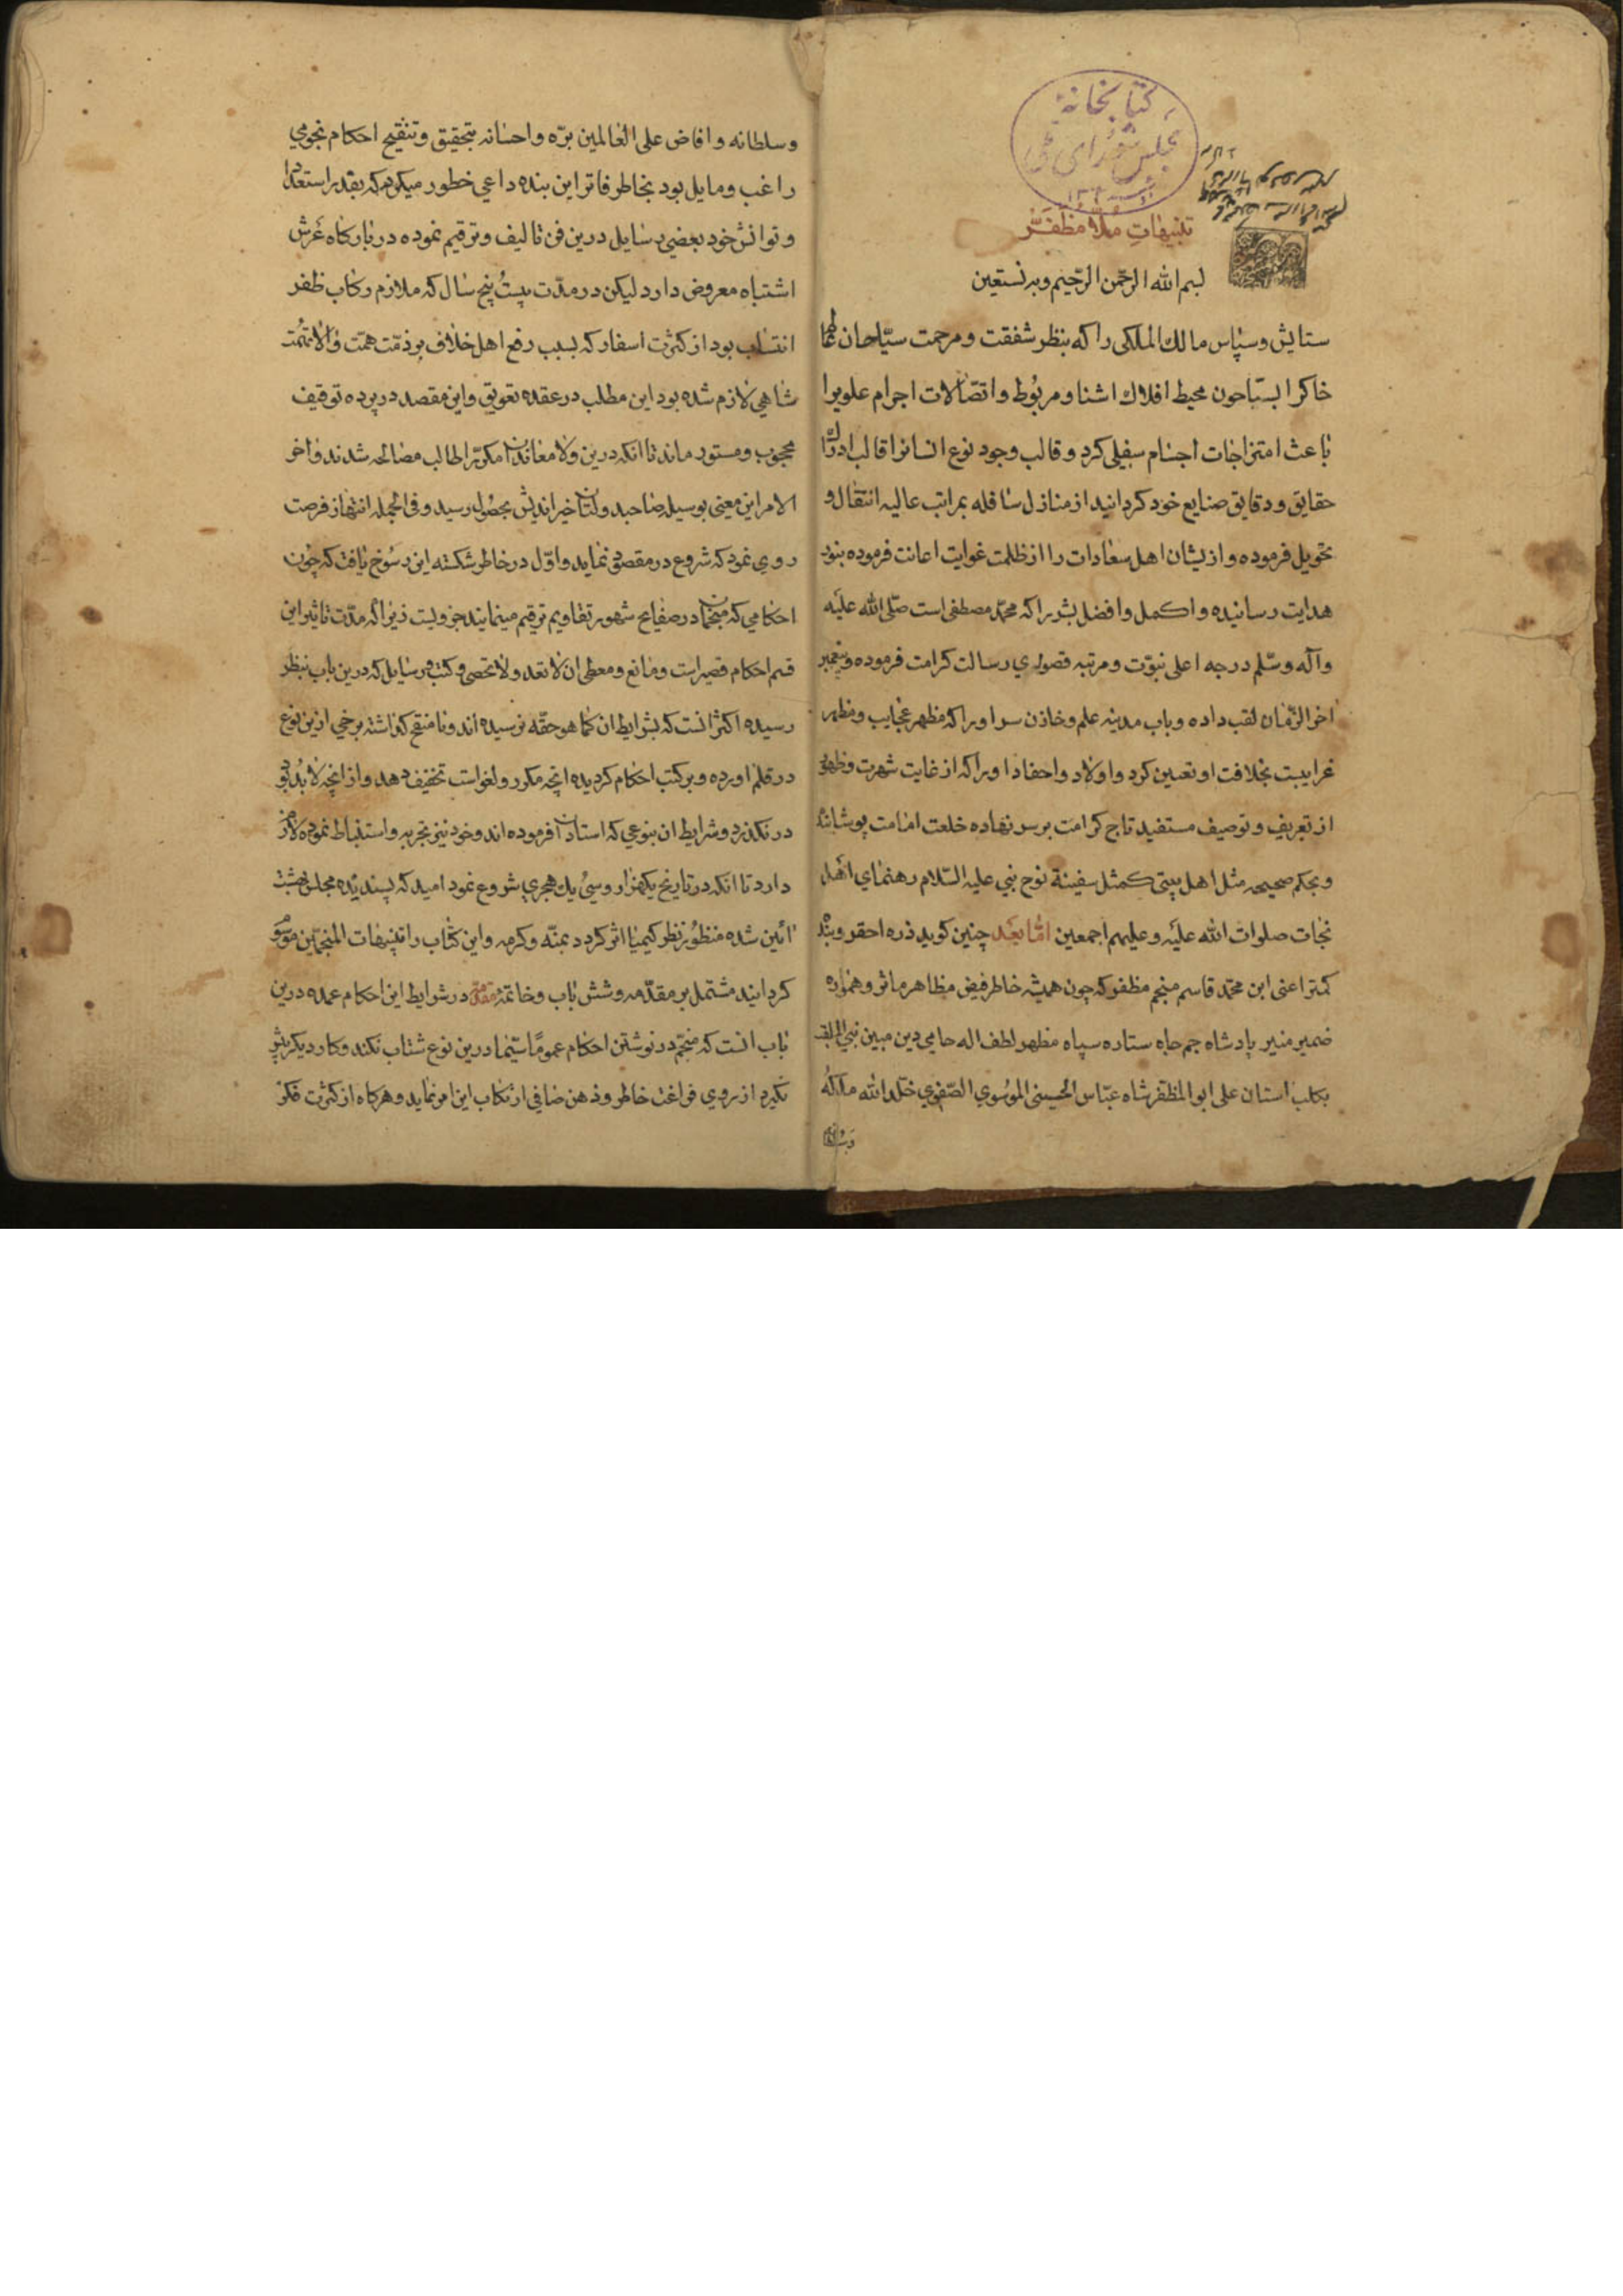 کتابخانهٔ
مجلس شورای ملی
تنبیهات ملا مظفر
بسم الله الرحمن الرحیم وبه نستعین
ستایش وسپاس مالك الملکی را که بنظر شفقت ومرحمت سیاحان
خاکرا بسباحون محیط افلاك اشنا ومربوط واتصالات اجرام علویرا
باعث امتزاجات اجسام سفلی کرد وقالب وجود نوع انسانرا قالب ادراك
حقایق ودقایق صنایع خود کردانید از منازل سافله بمراتب عالیه انتقال و
تحویل فرموده وازیشان اهل سعادات را از ظلمت غوایت اعانت فرموده بنور
هدایت رسانیده واکمل وافضل بشر را که محمد مصطفی است صلی الله علیه
وآله وسلم درجه اعلی نبوت ومرتبه قصوی رسالت کرامت فرموده وپیغمبر
اخر الزمان لقب داده وباب مدینه علم وخازن سر او را که مظهر عجایب ومظهر
غرایبست بخلافت او تعیین کرد واولاد واحفاد او را که از غایت شهرت وظهور
از تعریف وتوصیف مستفید تاج کرامت بر سر نهاده خلعت امامت پوشانیده
وبحکم صحیحه مثل اهل بیتی کمثل سفینة نوح نبی علیه السلام رهنمای اهل
نجات صلوات الله علیه وعلیهم اجمعین اما بعد چنین کوید ذره احقر وبنده
کمتر اعنی ابن محمد قاسم منجم مظفر که چون همیشه خاطر فیض مظاهر ماثر وهمواره
ضمیر منیر پادشاه جم جاه ستاره سپاه مظهر لطف اله حامی دین مبین نبی الملقب
بکلب استان علی ابو المظفر شاه عباس الحسینی الموسوی الصفوی خلد الله ملکه
وسلطانه
وسلطانه وافاض علی العالمین بره واحسانه بتحقیق وتنقیح احکام نجومی
راغب ومایل بود بخاطر فاتر این بنده داعی خطور میکرد که بقدر استعداد
وتوانش خود بعضی رسایل درین فن تالیف وترقیم نموده در بارکاه عرش
اشتباه معروض دارد لیکن در مدت بیست پنج سال که ملازم رکاب ظفر
انتساب بود از کثرت اسفار که بسبب رفع اهل خلاف بر ذمت همت والانهمت
شاهی لازم شده بود این مطلب در عقده تعویق واین مقصد در پرده توقیف
محجوب ومستور ماند تا انکه درین ولا معاندان مکرر الطالب مصالحه شدند واخر
الامر این معنی بوسیله صاحبدولتان خیر اندیش بحصول رسید وفی الجمله انتهاز فرصت
روی نمود که شروع در مقصد نماید واول در خاطر شکسته این رسوخ یافت که چون
احکامی که منجمان در صفایح شهور تقاویم ترقیم مینمایند جزویست زیرا که مدت تاثیر این
قسم احکام قصیر است ومانع ومعطی ان لا تعد ولا تحصی وکتب ورسایل که درین باب بنظر
رسیده اکثر انست که بشرایط ان کما هو حقه نرسیده اند ونا منقح کذاشته برخی ازین نوع
در قلم اورده وبر کتب احکام کردیده انچه مکرر ولغو است تخفیف دهد واز انچه لابد بود
در نکذرد وشرایط ان بنوعی که استادان فرموده اند وخود نیز تجربه واستنباط نموده لازم
دارد تا انکه در تاریخ یکهزار وسی یك هجری شروع نمود امید که پسندیده مجلس بهشت
ائین شده منظور نظر کیمیا اثر کردد بمنه وکرمه واین کتاب را تنبیهات المنجمین موسوم
کردانید مشتمل بر مقدمه وشش باب وخاتمه مقدمه در شرایط این احکام عمده درین
باب انست که منجم در نوشتن احکام عموما سیما درین نوع شتاب نکند وکار دیکر پیش
نکیرد از روی فراغت خاطر وذهن صافی ارتکاب این امر نماید وهرکاه از کثرت فکر